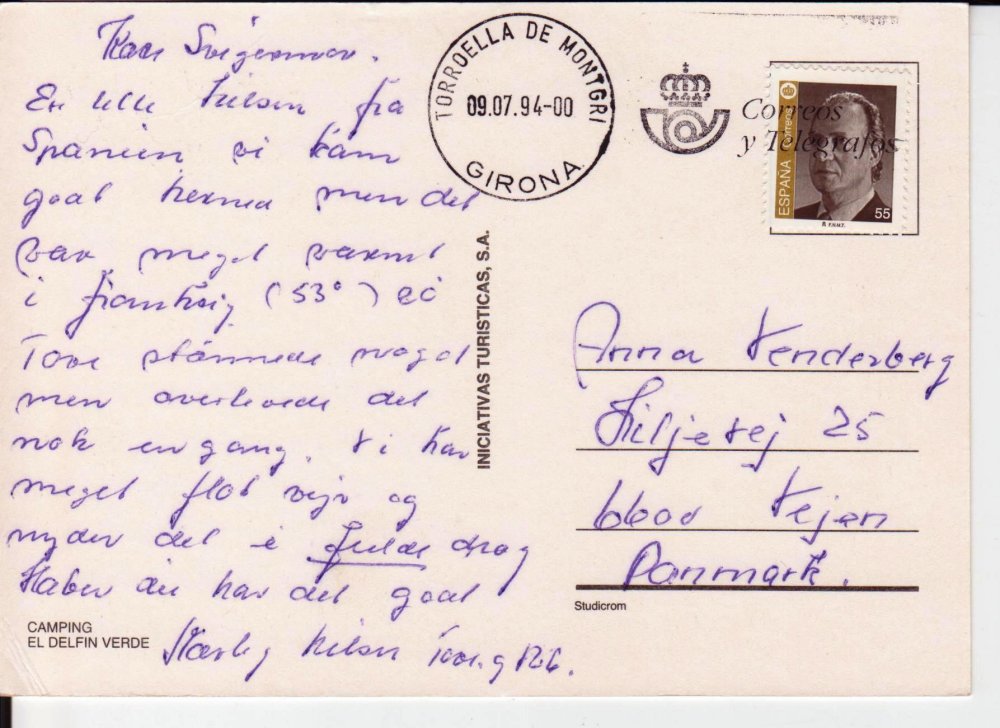 Kære Svigermor.
En lille hilsen fra
Spanien vi kom
godt herned men det
var meget varmt
i Frankrig (53°) så
Tove stønnede noget
men overlevede det
nok engang. Vi har
meget flot vejr og
nyder det i fulde drag
Håber du har det godt
Kærlig hilsen Tove og
CAMPING
EL DELFIN VERDE
INICIATIVAS TURISTICAS, S.A.
TORROELLA DE MONTGRI
09.07.94-00
GIRONA
Correos
y Telégrafos
ESPAÑA
correos
55
F.N.M.T.
Anna Venderberg
Liljevej 25
6600 Vejen
Danmark.
Studicrom